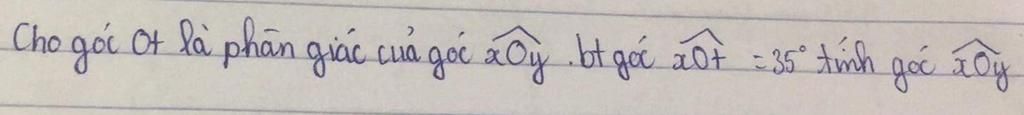 Cho góc Ot là phân giác của góc xOy. bt góc xOt = 35° tính góc xOy